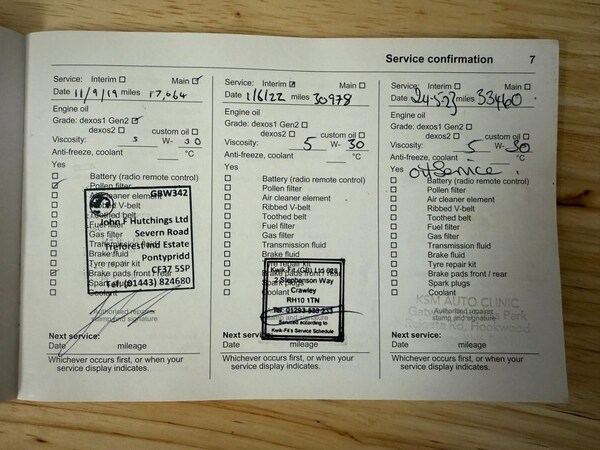 Service confirmation 7
Service: Interim Main
Date 11/9/19 miles 17,664
Engine oil
Grade: dexos1 Gen2
dexos2 custom oil
Viscosity: 5 W- 30
Anti-freeze, coolant °C
Yes
Battery (radio remote control)
Pollen filter
Air cleaner element
Ribbed V-belt
Toothed belt
Fuel filter
Gas filter
Transmission fluid
Brake fluid
Tyre repair kit
Brake pads front / rear
Spark plugs
Coolant
GBW342
John F Hutchings Ltd
Severn Road
Treforest Ind Estate
Pontypridd
CF37 5SP
Tel: (01443) 824680
Authorised repairer
stamp and signature
Next service:
Date mileage
Whichever occurs first, or when your
service display indicates.
Service: Interim Main
Date 1/6/22 miles 30978
Engine oil
Grade: dexos1 Gen2
dexos2 custom oil
Viscosity: 5 W- 30
Anti-freeze, coolant °C
Yes
Battery (radio remote control)
Pollen filter
Air cleaner element
Ribbed V-belt
Toothed belt
Fuel filter
Gas filter
Transmission fluid
Brake fluid
Tyre repair kit
Brake pads front / rear
Spark plugs
Coolant
Kwik-Fit (GB) Ltd
2 Stephenson Way
Crawley
RH10 1TN
Tel
Serviced according to
Kwik-Fit's Service Schedule
Next service:
Date mileage
Whichever occurs first, or when your
service display indicates.
Service: Interim Main
Date 24-5-23 miles 33460
Engine oil
Grade: dexos1 Gen2
dexos2 custom oil
Viscosity: 5 W- 30
Anti-freeze, coolant °C
Yes oil Service
Battery (radio remote control)
Pollen filter
Air cleaner element
Ribbed V-belt
Toothed belt
Fuel filter
Gas filter
Transmission fluid
Brake fluid
Tyre repair kit
Brake pads front / rear
Spark plugs
Coolant
KSM AUTO CLINIC
Park
Reigate Rd, Hookwood
Authorised repairer
stamp and signature
Next service:
Date mileage
Whichever occurs first, or when your
service display indicates.